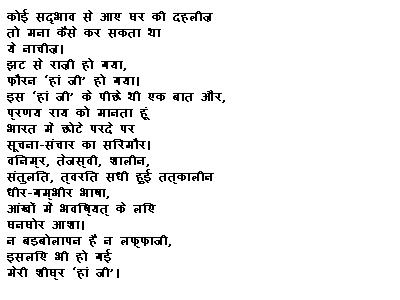 कोई सद्भाव से आए घर की दहलीज़
तो मना कैसे कर सकता था
ये नाचीज़।
झट से राज़ी हो गया,
फौरन ‘हां जी’ हो गया।
इस ‘हां जी’ के पीछे थी एक बात और,
प्रणय राय को मानता हूं
भारत में छोटे परदे पर
सूचना-संचार का सिरमौर।
विनम्र, तेजस्वी, शालीन,
संतुलित, त्वरित सधी हुई तत्कालीन
धीर-गम्भीर भाषा,
आंखों में भविष्यित् के लिए
घनघोर आशा।
न बड़बोलापन है न लफ्फाजी,
इसलिए भी हो गई
मेरी शीघ्र ‘हां जी’।